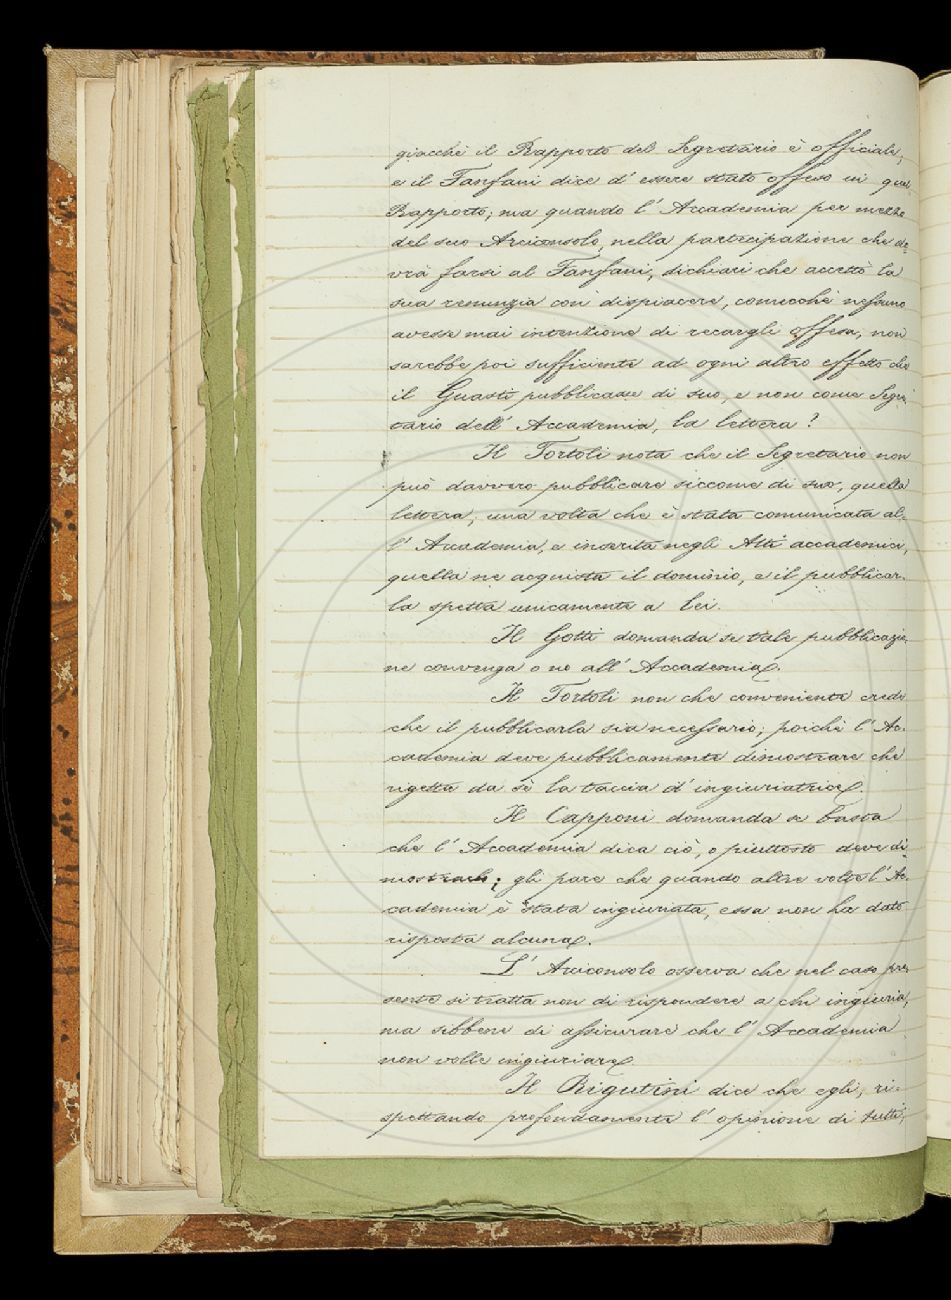 giacchè il Rapporto del Segretario è officiale,
e il Fanfani dice d'essere stato offeso in quel
Rapporto; ma quando l'Accademia per mezzo
del suo Arciconsolo, nella partecipazione che do-
vrà farsi al Fanfani, dichiari che accettò la
sua renunzia con dispiacere, comecchè nessuno
avesse mai intenzione di recargli offesa, non
sarebbe poi sufficiente ad ogni altro effetto che
il Guasti pubblicasse di suo, e non come Segre-
tario dell'Accademia, la lettera?
Il Tortoli nota che il Segretario non
può davvero pubblicare siccome di suo, quella
lettera; una volta che è stata comunicata al-
l'Accademia, e inserita negli Atti accademici,
quella ne acquista il dominio, e il pubblicar-
la spetta unicamente a lei.
Il Gotti domanda se tale pubblicazio-
ne convenga o no all'Accademia.
Il Tortoli non che conveniente crede
che il pubblicarla sia necessario; poichè l'Ac-
cademia deve pubblicamente dimostrare che
rigetta da sè la taccia d'ingiuriatrice.
Il Capponi domanda se basta
che l'Accademia dica ciò, o piuttosto deve di-
mostrarlo; gli pare che quando altre volte l'Ac-
cademia è stata ingiuriata, essa non ha dato
risposta alcuna.
L'Arciconsolo osserva che nel caso pre-
sente si tratta non di rispondere a chi ingiuria,
ma sibbene di assicurare che l'Accademia
non volle ingiuriare.
Il Rigutini dice che egli, ri-
spettando profondamente l'opinione di tutti,